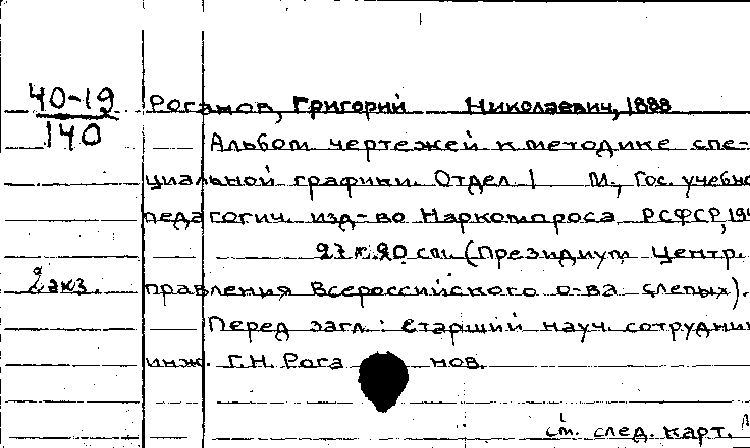 40-19
140
Роганов, Григорий Николаевич, 1888
Альбом чертежей к методике спе-
циальной графики. Отдел 1 М., Гос. учебно
педагогич. изд-во Наркомпроса РСФСР, 194
27 х 20 см. (Президиум Центр.
2 экз. правления Всероссийского о-ва слепых).
Перед загл.: Старший науч. сотрудник
инж. Г.Н. Рога нов.
см. след. карт.